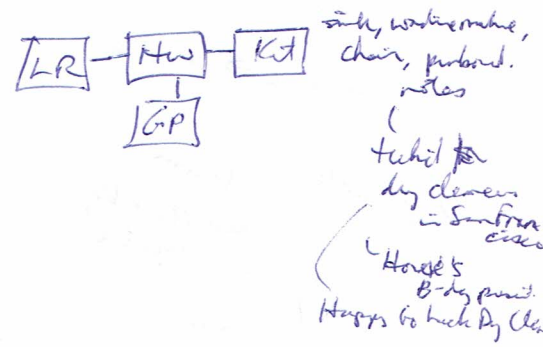 LR
HW
Kit
GP
sink, washing machine,
chair, pinboard.
notes
ticket for
dry cleaners
in San Fran
cisco
House's
B-day
Happy Go Luck Dry Clea